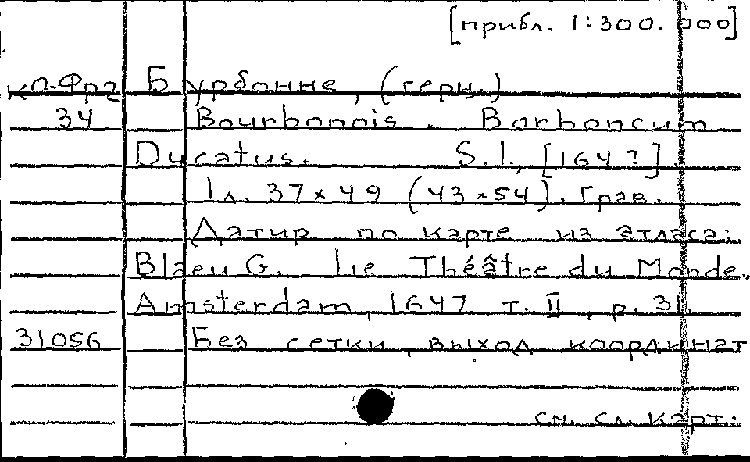 [прибл. 1:300.000]
кл-Фр2 Бурбонне, (герц.)
34 Bourbonois. Borboncum
Ducatus. S.l., [164?].
1 л. 37×49 (43×54). Грав.
Датир по карте из атласа:
Blaeu G. Le Théâtre du Monde.
Amsterdam, 1647 т. II, p. 31.
31056 Без сетки, выход координат
см. сл. карт: